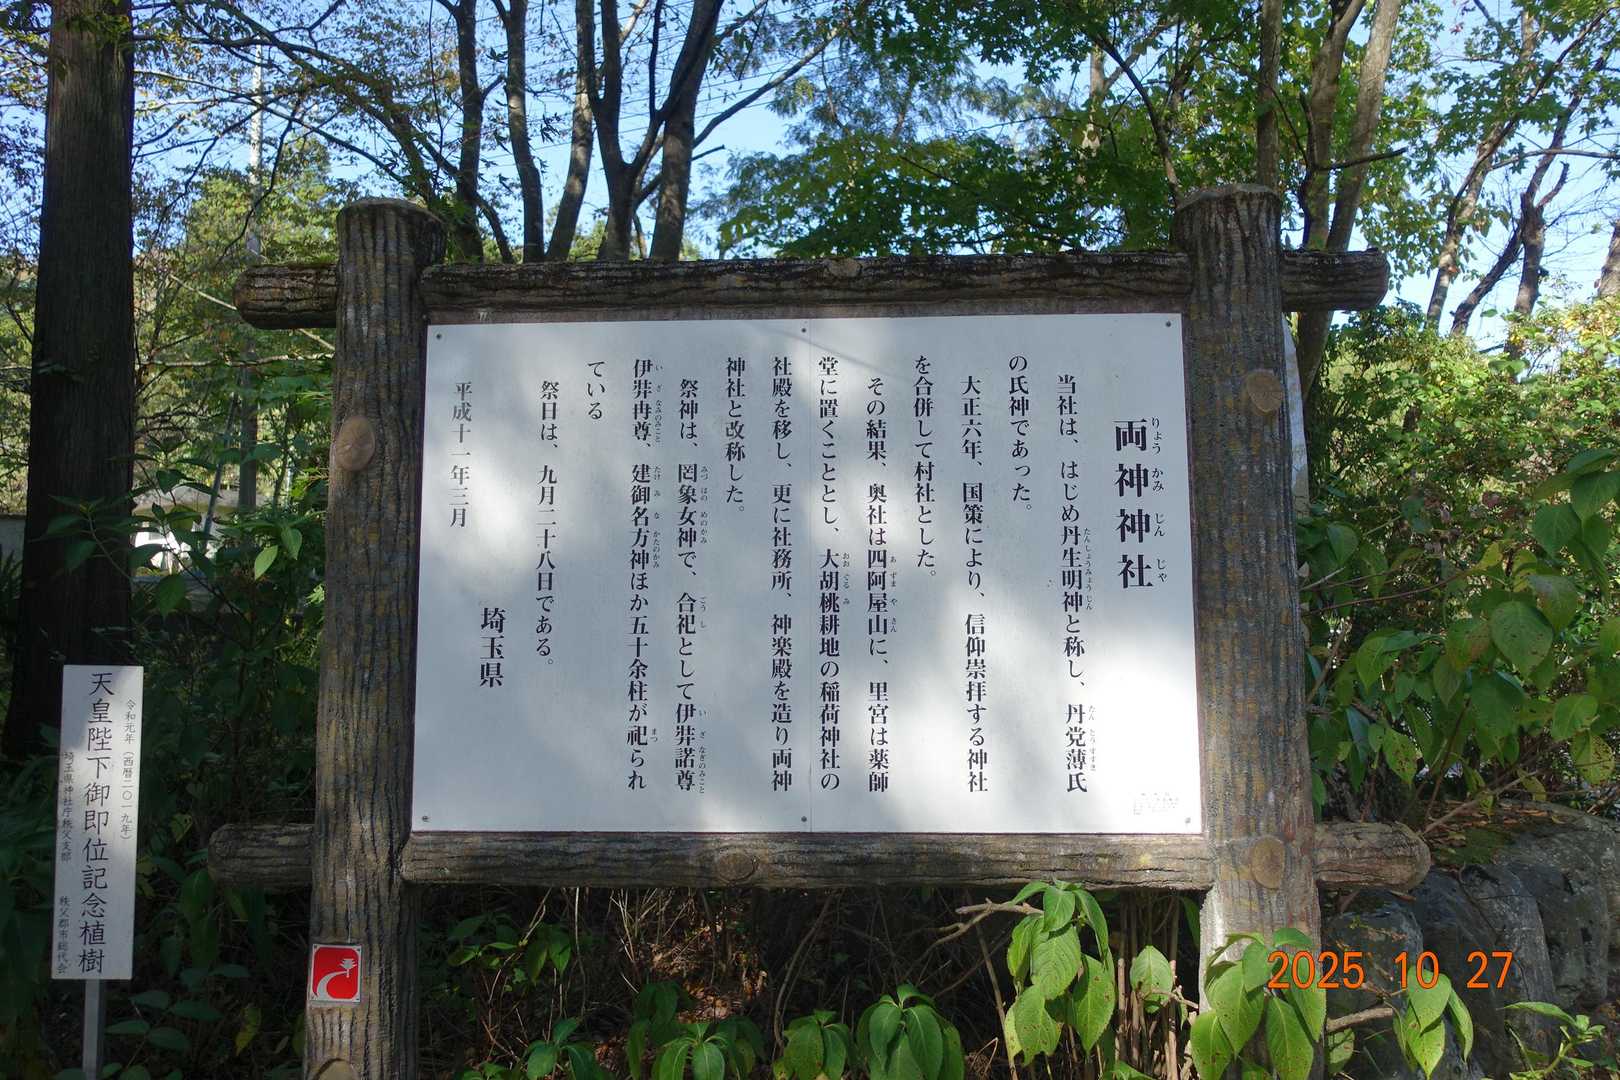 両神神社
当社は、はじめ丹生明神と称し、丹党薄氏
の氏神であった。
大正六年、国策により、信仰崇拝する神社
を合併して村社とした。
その結果、奥社は四阿屋山に、里宮は薬師
堂に置くこととし、大胡桃耕地の稲荷神社の
社殿を移し、更に社務所、神楽殿を造り両神
神社と改称した。
祭神は、罔象女神で、合祀として伊弉諾尊
伊弉冉尊、建御名方神ほか五十余柱が祀られ
ている
祭日は、九月二十八日である。
埼玉県
平成十一年三月
令和元年（西暦二〇一九年）
天皇陛下御即位記念植樹
埼玉県神社庁秩父支部　秩父郡市総代会
2025 10 27